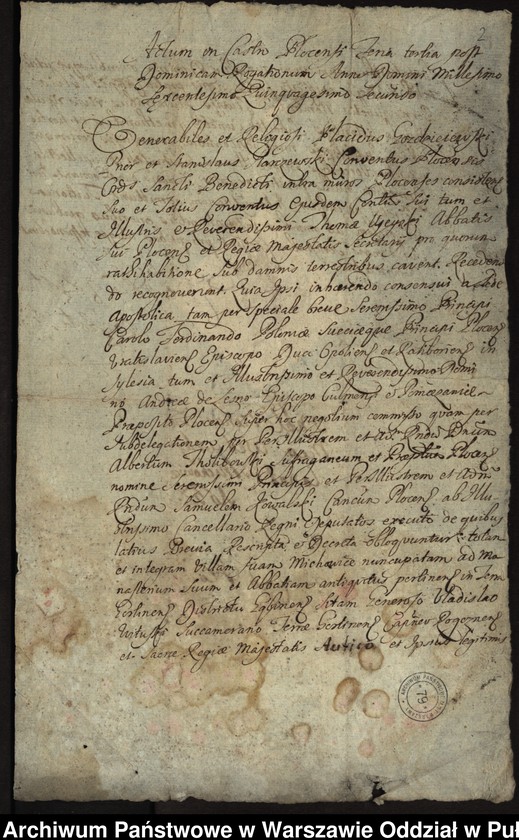 2
Actum in Castro Plocensi Feria tertia post
Dominicam Rogationum Anno Domini Millesimo
Sexcentesimo Quinquagesimo Secundo
Venerabiles et Religiosi Placidus
Prior et Stanislaus Conventus Plocensis
Ordis Sancti Benedicti intra muros Plocenses consisten
suo et Totius Conventus Ejusdem Sui tum et
Illustris et Reverendissimi Thomæ Uieyski Abbatis
sui Plocen et Regiæ Majestatis Secretarij pro quorum
ratihabitione sub damnis terrestribus cavent. Recedendo
do recognoverunt. Quia Ipsi inhærendo consensui a Sede
Apostolica tam per speciale breve Serenissimo Principi
Carolo Ferdinando Poloniæ Sueciæque Principi Plocen
Wratislavien Episcopo Duci Opolien et Ratiborien in
Sylesia tum et Illustrissimo et Reverendissimo Domi
no Andreæ de Leszno Episcopo Culmens et Pomesaniæ
Præposito Plocen super hoc negotium commisso quam per
Subdelegationem per Perillustrem et Adm Rndu Dnum
Albertum Tholibowski Suffraganeum et Præptum Plocen
nomine Serenissimi Principis et Perillustrem et Adm
Rndum Samuelem Kowalski Cancum Plocen ab Illu
strissimo Cancellario Regni Deputatos executo de quibus
latius Brevia Rescripta et Decreta obloquuntur totam
et integram Villam suam Michowice nuncupatam ad Mo
nasterium suum et Abbatiam antiquitus pertinen in Terra
District sitam Generoso Vladislao
Succamerario Terræ
et Sacræ Regiæ Majestatis Aulico et Ipsius legitimis
ARCHIWUM PAŃSTWOWE
79
Archiwum Państwowe w Warszawie Oddział w Puł